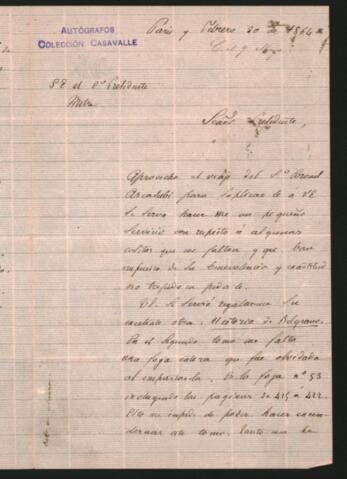 AUTÓGRAFOS
COLECCIÓN CASAVALLE
Paris y Febrero 20 de 1864
S E el Sr Presidente
Mitre
Señor Presidente,
Aprovecho el viaje del Sr
para suplicar le á VE
se sirva hacer me un pequeño
servicio con respecto á algunas
cositas que me faltan y que
de su benevolencia y
no trepido en pedirlo.
VE se sirvió regalarme su
excelente obra, Historia de Belgrano.
En el segundo tomo me falta
una foja entera que fué olvidada
al empastarla. Es la foja nº 53
las paginas de 415 á 422.
Esto me impide de poder hacer encua-
dernar este tomo. Tanto me he